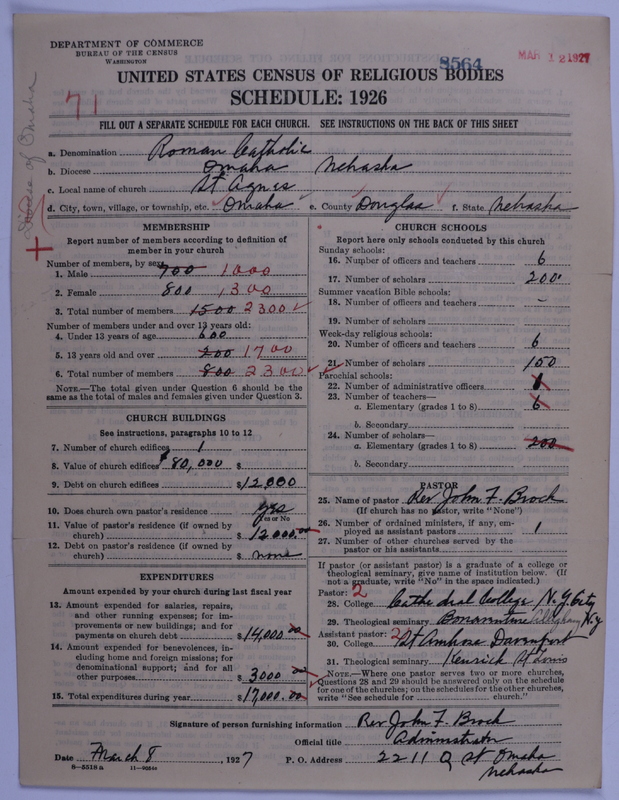 DEPARTMENT OF COMMERCE
BUREAU OF THE CENSUS
WASHINGTON
8564
MAR 12 1927
UNITED STATES CENSUS OF RELIGIOUS BODIES
SCHEDULE: 1926
71
Diocese of Omaha
FILL OUT A SEPARATE SCHEDULE FOR EACH CHURCH. SEE INSTRUCTIONS ON THE BACK OF THIS SHEET
a. Denomination Roman Catholic
b. Diocese Omaha Nebraska
c. Local name of church St Agnes
d. City, town, village, or township, etc. Omaha e. County Douglas f. State Nebraska
MEMBERSHIP
Report number of members according to definition of
member in your church
Number of members, by sex:
1. Male 700 1000
2. Female 800 1300
3. Total number of members 1500 2300
Number of members under and over 13 years old:
4. Under 13 years of age 600
5. 13 years old and over 200 1700
6. Total number of members 800 2300
NOTE.—The total given under Question 6 should be the
same as the total of males and females given under Question 3.
CHURCH BUILDINGS
See instructions, paragraphs 10 to 12
7. Number of church edifices 1
8. Value of church edifices $80,000 $
9. Debt on church edifices $12000
10. Does church own pastor's residence yes
Yes or No
11. Value of pastor's residence (if owned by
church) $12000.00
12. Debt on pastor's residence (if owned by
church) $ none
EXPENDITURES
Amount expended by your church during last fiscal year
13. Amount expended for salaries, repairs,
and other running expenses; for im-
provements or new buildings; and for
payments on church debt $14,000.00
14. Amount expended for benevolences, in-
cluding home and foreign missions; for
denominational support; and for all
other purposes $3000.00
15. Total expenditures during year $17,000.00
CHURCH SCHOOLS
Report here only schools conducted by this church
Sunday schools:
16. Number of officers and teachers 6
17. Number of scholars 200
Summer vacation Bible schools:
18. Number of officers and teachers -
19. Number of scholars
Week-day religious schools:
20. Number of officers and teachers 6
21. Number of scholars 150
Parochial schools:
22. Number of administrative officers
23. Number of teachers—
a. Elementary (grades 1 to 8) 6
b. Secondary
24. Number of scholars—
a. Elementary (grades 1 to 8) 200
b. Secondary
PASTOR
25. Name of pastor Rev John F. Brock
(If church has no pastor, write "None")
26. Number of ordained ministers, if any, em-
ployed as assistant pastors 1
27. Number of other churches served by the
pastor or his assistants
If pastor (or assistant pastor) is a graduate of a college or
theological seminary, give name of institution below. (If
not a graduate, write "No" in the space indicated.)
Pastor: 2
28. College Cathedral College, N.Y. City
29. Theological seminary Bonaventure Allegheny N.Y
Assistant pastor: 2
30. College St Ambrose Davenport
31. Theological seminary Kenrick St Louis
NOTE.—Where one pastor serves two or more churches,
Questions 28 and 29 should be answered only on the schedule
for one of the churches; on the schedules for the other churches,
write "See schedule for church."
Signature of person furnishing information Rev John F. Brock
Official title Administrator
Date March 8, 1927 P. O. Address 2211 Q St Omaha
Nebraska
8—5518 a 11—9564